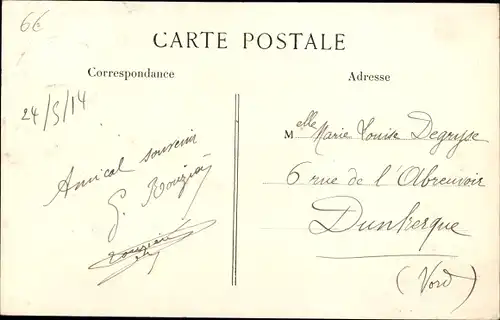 6€
CARTE POSTALE
Correspondance
Adresse
24/5/14
Amical souvenir
Melle Marie Louise Degryse
6 rue de l'Abreuvoir
Dunkerque
(Nord)